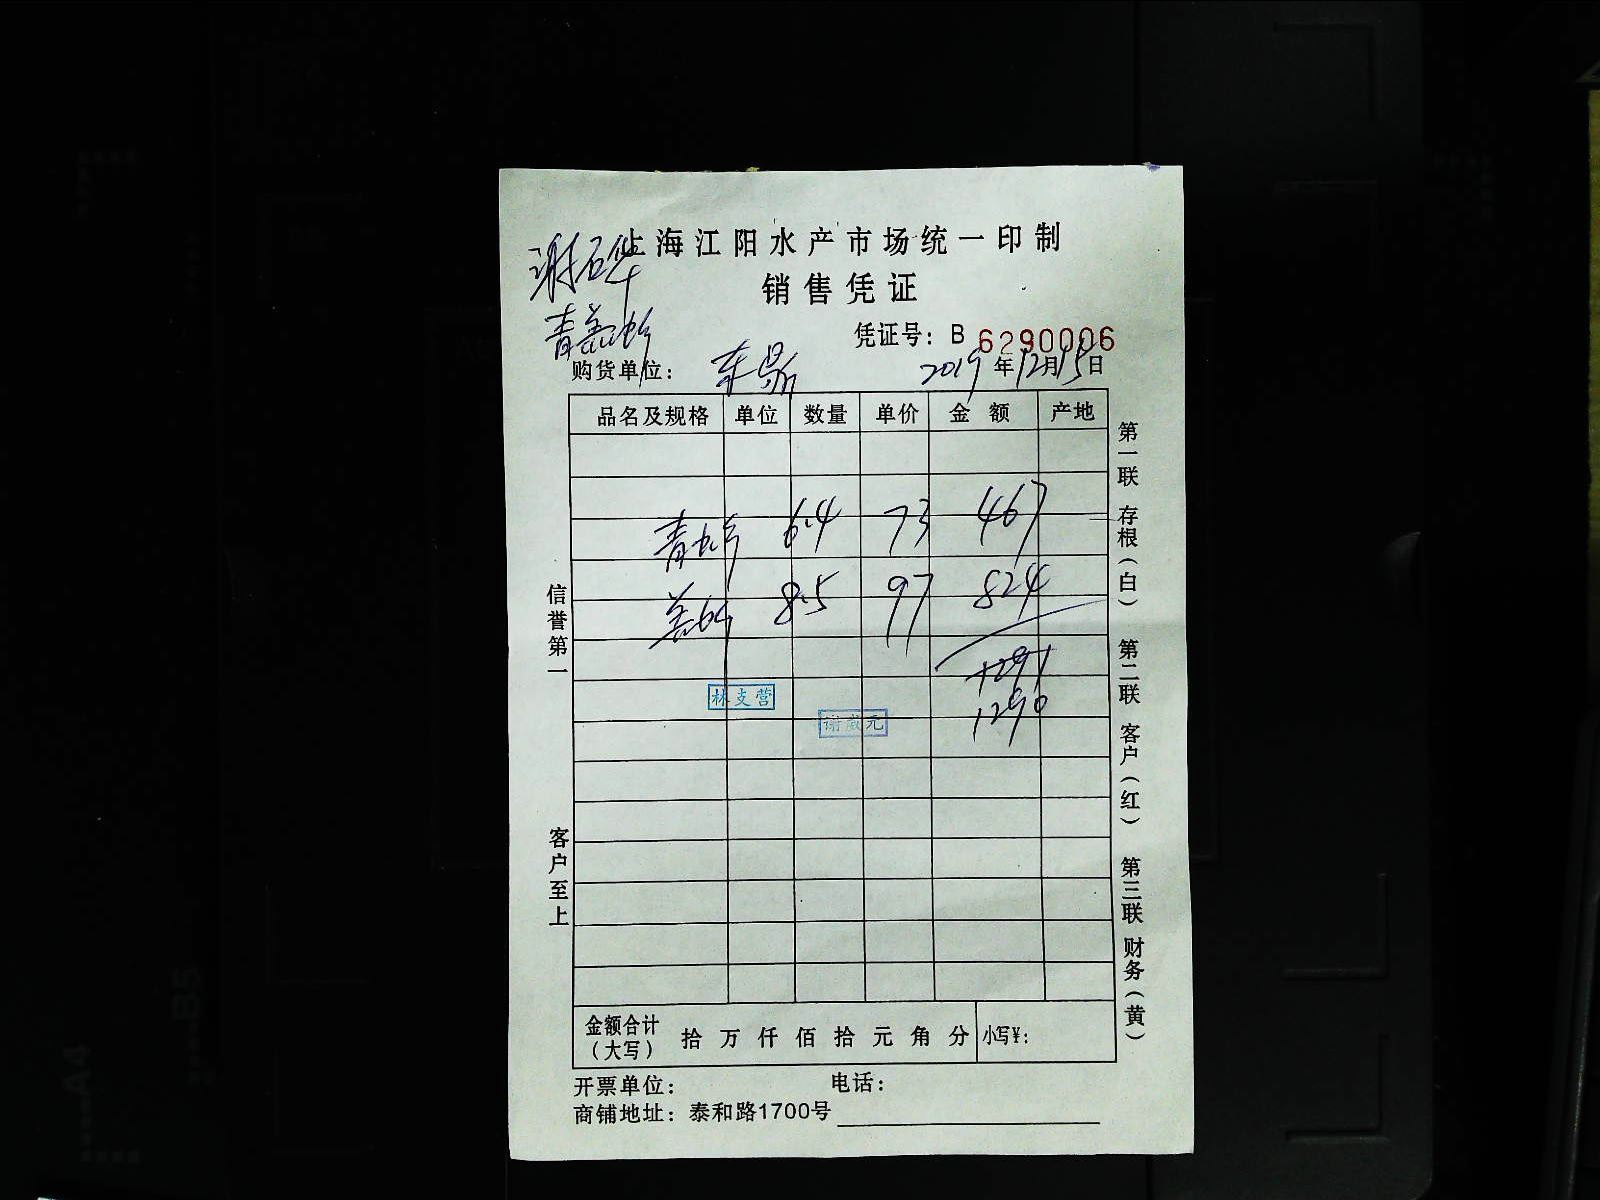 上海江阳水产市场统一印制
销售凭证
谢石华
凭证号：B 6290006
购货单位：
2019年12月15日
品名及规格 单位 数量 单价 金额 产地
青虾 6.4 73 467
8.5 97 824
1291
1290
林支营
谢威元
信誉第一
客户至上
第一联 存根（白） 第二联 客户（红） 第三联 财务（黄）
金额合计（大写） 拾 万 仟 佰 拾 元 角 分 小写¥：
开票单位： 电话：
商铺地址：泰和路1700号